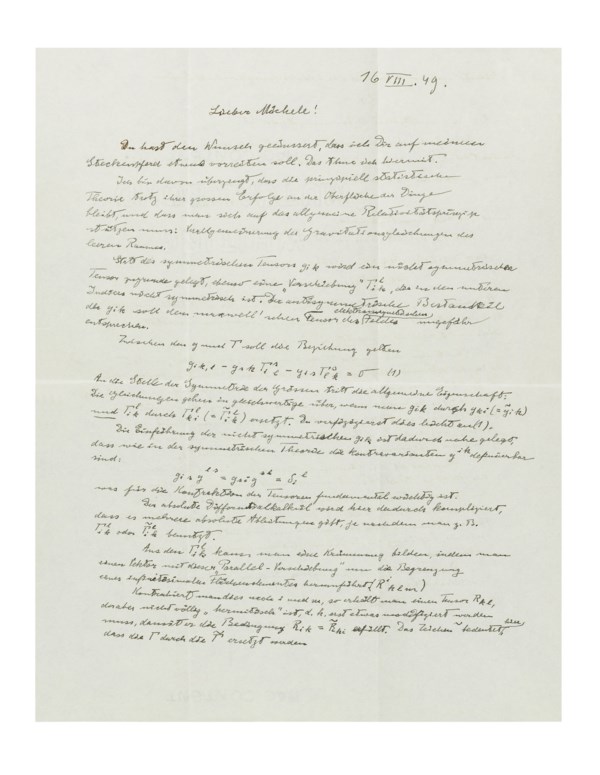 16 VIII. 49.
Lieber Michele!
Du hast den Wunsch geäussert, dass ich Dir auf meinem
Steckenpferd etwas vorreiten soll. Das thue ich hiermit.
Ich bin davon überzeugt, dass die prinzipiell statistische
Theorie trotz ihrer grossen Erfolge an der Oberfläche der Dinge
bleibt, und dass man sich auf das allgemeine Relativitätsprinzip
stützen muss: Verallgemeinerung der Gravitationsgleichungen des
leeren Raumes.
Statt des symmetrischen Tensors gik wird ein nicht symmetrischer
Tensor zugrunde gelegt, ebenso eine "Verschiebung" Γ_ik^l, die in den unteren
Indices nicht symmetrisch ist. Die antisymmetrische Bestandteil
der gik soll dem Maxwell'schen Tensor des elektromagnetischen Feldes ungefähr
entsprechen.
Zwischen den g und Γ soll die Beziehung gelten
g_ik,l - g_sk Γ_il^s - g_is Γ_lk^s = 0 (1)
An die Stelle der Symmetrie der Grössen tritt die allgemeine Eigenschaft:
Die Gleichungen gehen in gleichwertige über, wenn man gik durch gki (= g̃ik)
und Γ_ik^l durch Γ_ki^l (= Γ̃_ik^l) ersetzt. Du verifizierst dies leicht an (1).
Die Einführung der nicht symmetrischen gik ist dadurch nahe gelegt,
dass wie in der symmetrischen Theorie die Kontravarianten g^ik definierbar
sind:
g_is g^ls = g_si g^sl = δ_i^l
was für die Kontraktion der Tensoren fundamental wichtig ist.
Der absolute Differentialkalkül wird hier dadurch kompliziert,
dass es mehrere absolute Ableitungen gibt, je nachdem man z. B.
Γ_ik^l oder Γ̃_ik^l benutzt.
Aus den Γ_ik^l kann man eine Krümmung bilden, indem man
einen Vektor mit dieser "Parallel-Verschiebung" um die Begrenzung
eines infinitesimalen Flächenelementes herumführt (R^i_klm)
Kontrahiert man dies nach i und m, so erhält man einen Tensor Rkl,
der aber nicht völlig "hermitisch" ist, d. h. erst etwas modifiziert werden
muss, damit er die Bedingung Rik = R̃ki erfüllt. Das Zeichen ~ bedeutet,
dass die Γ durch die Γ̃ ersetzt werden